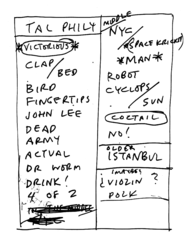 TAL PHILY
*VICTORIOUS*
CLAP/
BED
BIRD
FINGERTIPS
JOHN LEE
DEAD
ARMY
ACTUAL
DR WORM
DRINK!
4 OF 2
MIDDLE
NYC
/SPACE KRICKET
*MAN*
ROBOT
CYCLOPS
/SUN
COCTAIL
NO!
OLDER
ISTANBUL
¿VIOLIN?
POLK